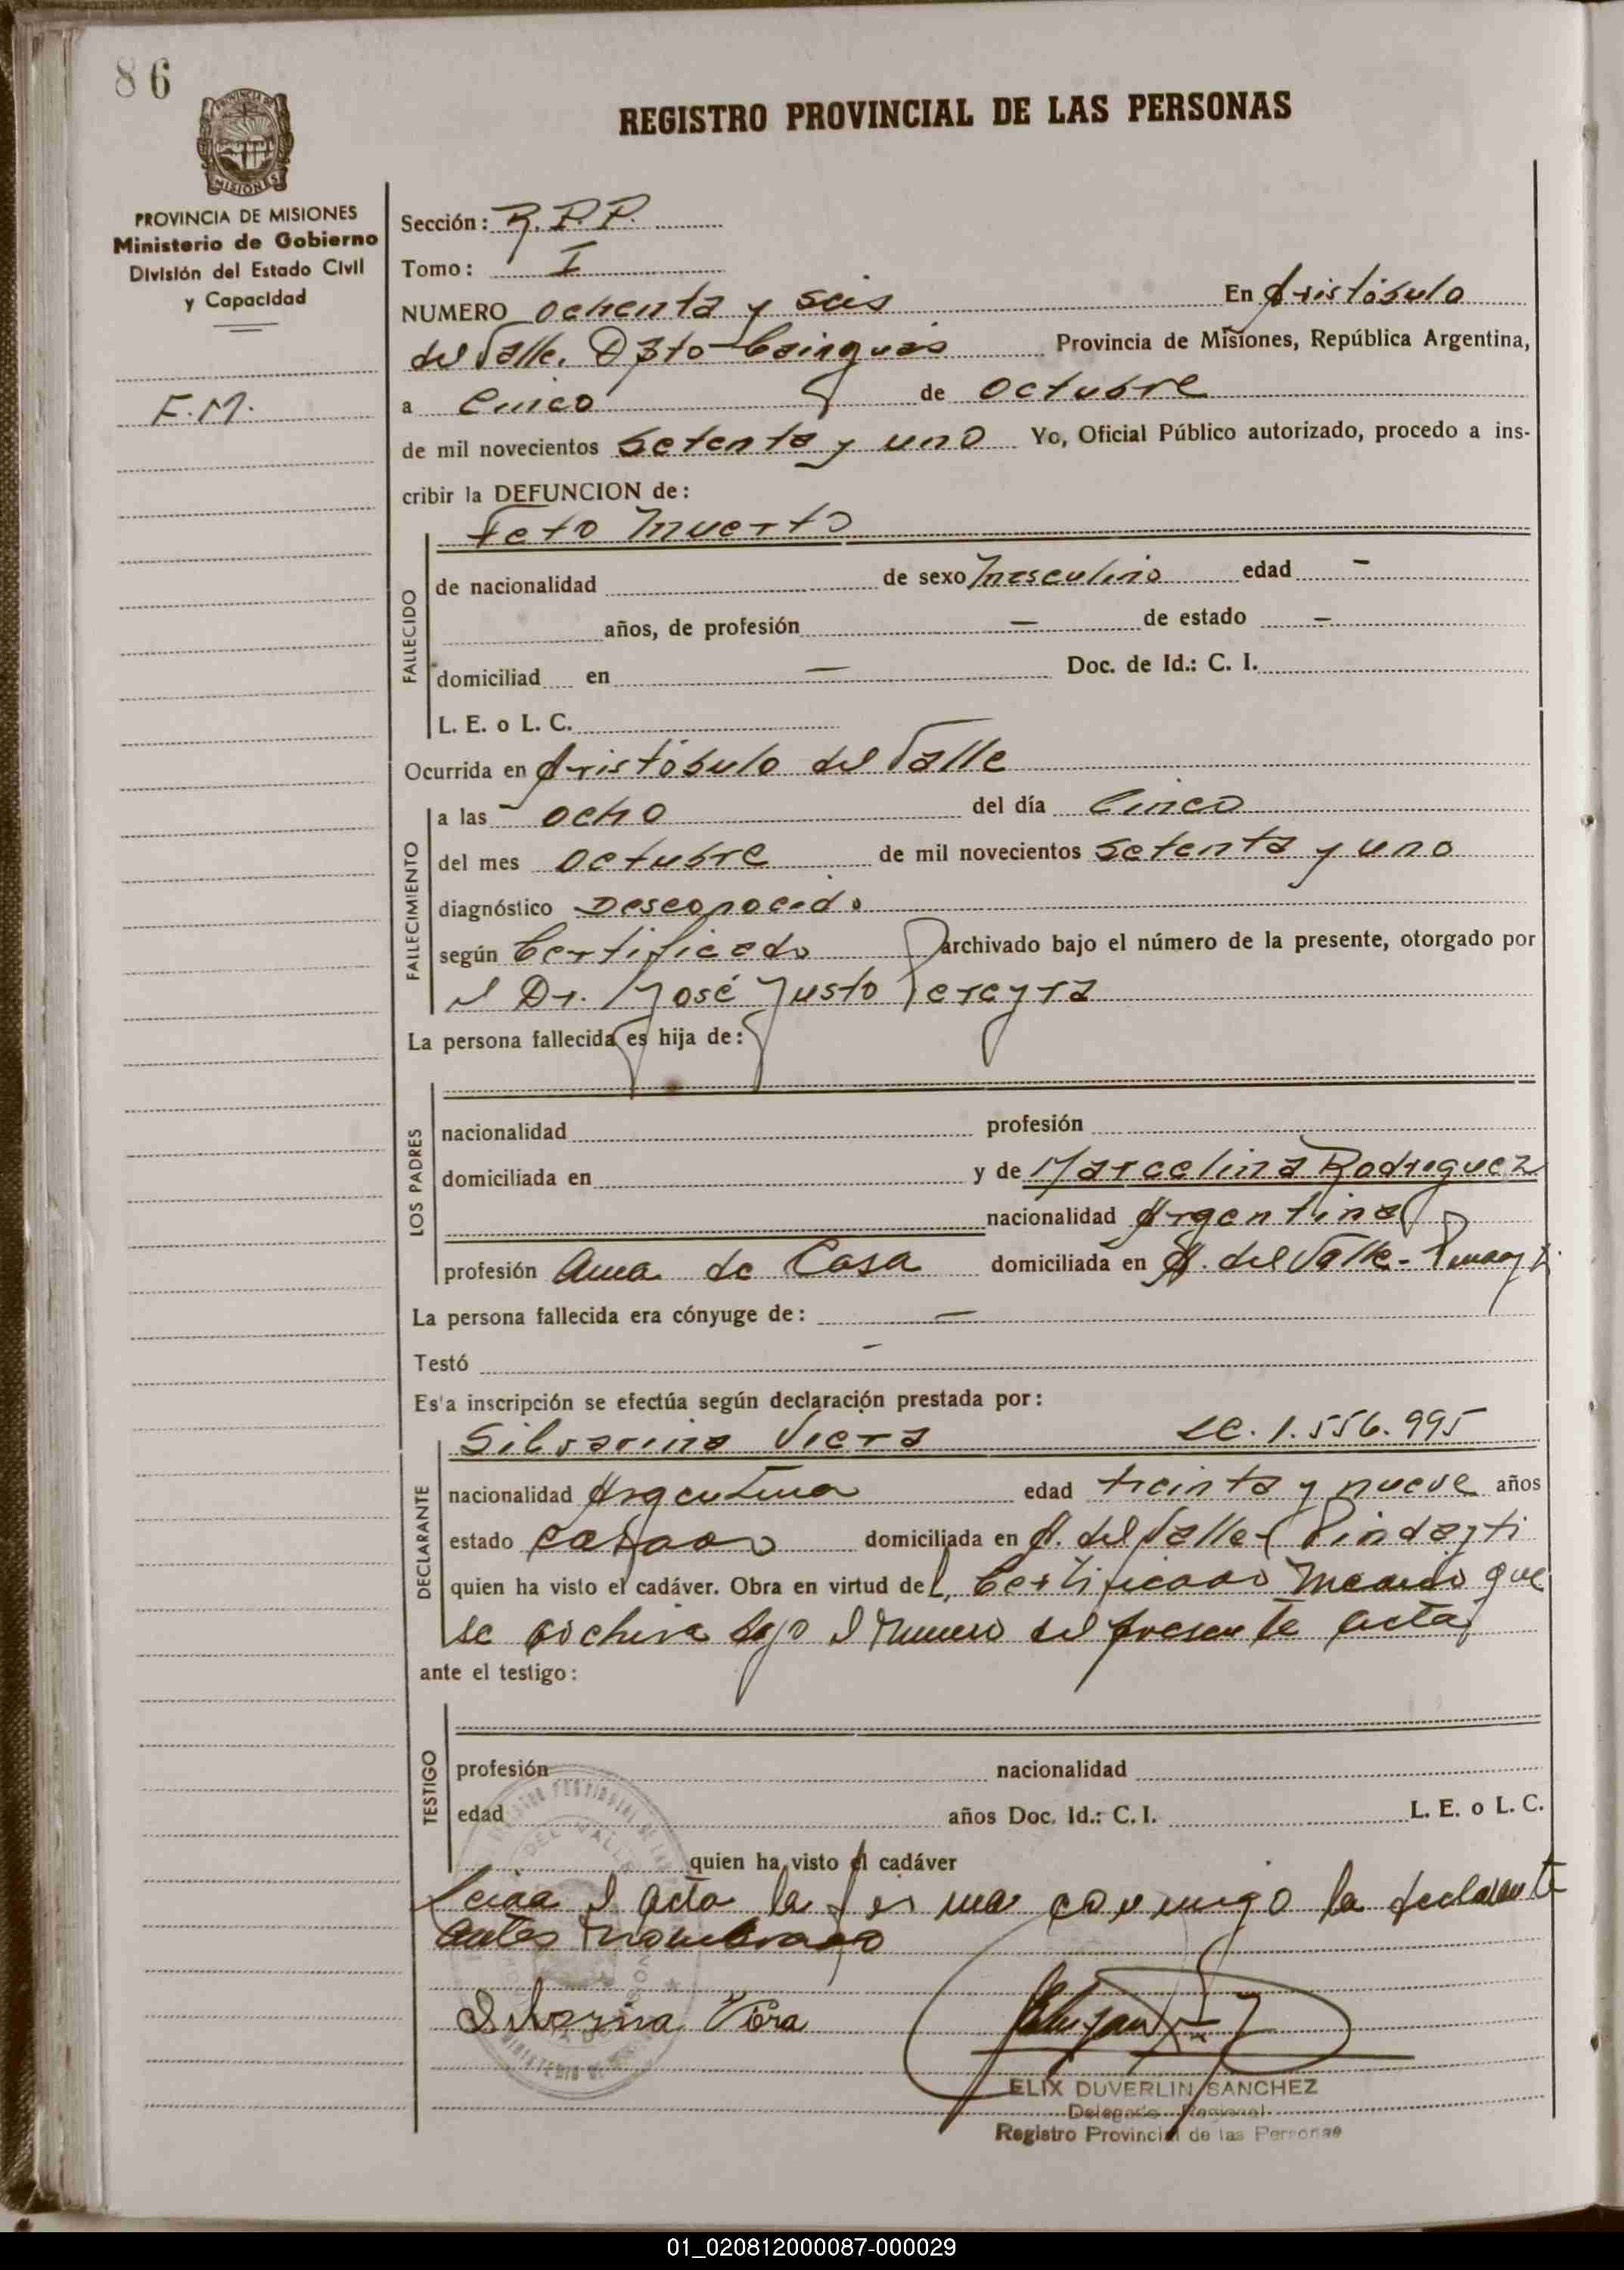 86
REGISTRO PROVINCIAL DE LAS PERSONAS
PROVINCIA DE MISIONES
MISIONES
PROVINCIA DE MISIONES
Ministerio de Gobierno
División del Estado Civil
y Capacidad
F.M.
Sección: R.P.P.
Tomo: I
NUMERO ochenta y seis En Aristóbulo
del Valle. Dpto Cainguás Provincia de Misiones, República Argentina,
a Cinco de octubre
de mil novecientos setenta y uno Yo, Oficial Público autorizado, procedo a ins-
cribir la DEFUNCION de:
FALLECIDO
Feto Muerto
de nacionalidad de sexo Masculino edad -
años, de profesión - de estado -
domiciliad en - Doc. de Id.: C. I.
L. E. o L. C.
Ocurrida en Aristóbulo del Valle
FALLECIMIENTO
a las ocho del día Cinco
del mes octubre de mil novecientos setenta y uno
diagnóstico Desconocido
según Certificado archivado bajo el número de la presente, otorgado por
el Dr. José Justo Pereyra
La persona fallecida es hija de:
LOS PADRES
nacionalidad profesión
domiciliada en y de Marcelina Rodriguez
nacionalidad Argentina
profesión Ama de Casa domiciliada en A. del Valle-
La persona fallecida era cónyuge de: -
Testó -
Es'a inscripción se efectúa según declaración prestada por:
DECLARANTE
Silvarina Viera LC. 1.556.995
nacionalidad Argentina edad treinta y nueve años
estado domiciliada en A. del Valle- Pindayti
quien ha visto el cadáver. Obra en virtud del, Certificado Medico que
se archiva bajo el numero del presente acta
ante el testigo:
TESTIGO
profesión nacionalidad
edad años Doc. Id.: C. I. L. E. o L. C.
quien ha visto el cadáver
Leida el acta la firma conmigo la declarante
antes nombrada
Silvarina Viera
ELIX DUVERLIN SANCHEZ
Delegado Regional
Registro Provincial de las Personas
DEL VALLE
01_020812000087-000029